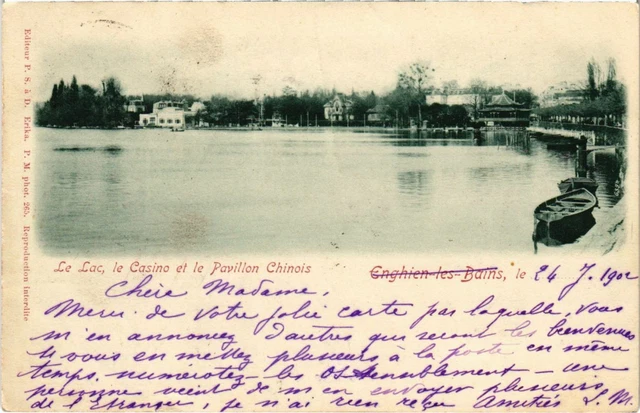 Editeur P. S. à D. Erika. P. M. phot. 205. Reproduction interdite
Le Lac, le Casino et le Pavillon Chinois
Enghien-les-Bains, le 24 J. 1902
Chère Madame,
Merci de votre jolie carte par laquelle, vous
m'en annoncez d'autres qui seront les bienvenues
Si vous en mettez plusieurs à la poste en même
temps, numérotez-les ostensiblement – une
personne vient de m'en envoyer plusieurs
de l'Etranger, je n'ai rien reçu Amitiés L. M.